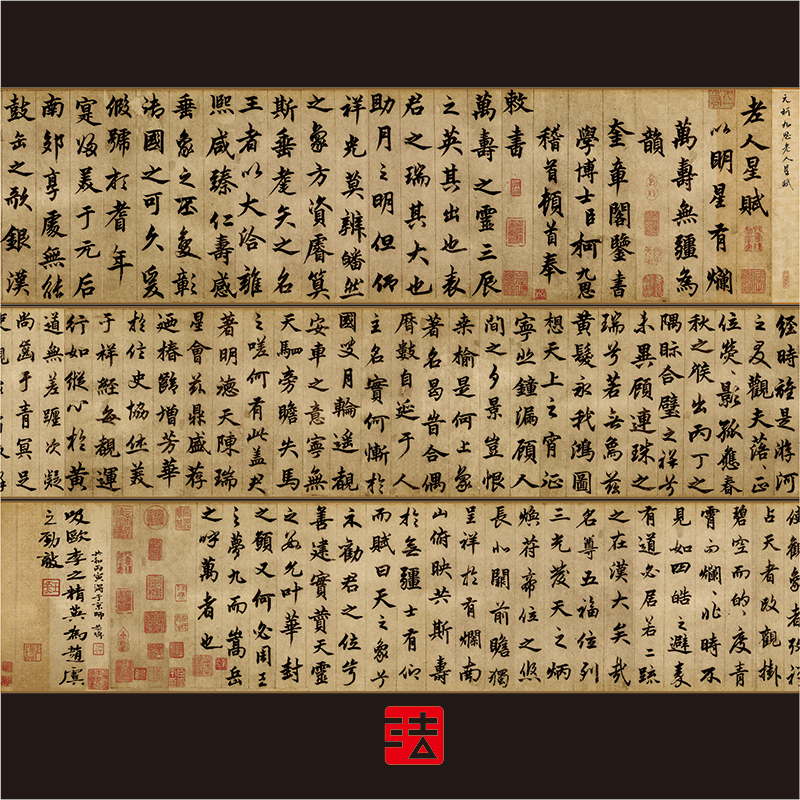 元柯九思老人星賦
老人星賦
以明星有爛
萬壽無疆為
韻
奎章閣鑒書
學博士臣柯九思
稽首頓首奉
敕書
萬壽之靈三辰
之英其出也表
君之瑞其大也
助月之明但仰
祥光莫辨皤然
之象方資睿筭
斯垂耄矣之名
王者以大洽雍
熙咸臻仁壽感
垂象之 彰
國之可久爰
假號於耆年
寔媲美于元后
南郊享處無能
鼓缶之歌銀漢
經時詎是游河
之友觀夫落落正
位熒熒影孤應春
秋之候出丙丁之
隅眎合璧之祥兮
未異顧連珠之
瑞兮若無為茲
黃髮永我鴻圖
想天上之宵征
寧悲鐘漏顧人
間之夕景豈恨
桑榆是何上象
著名曷昔合偶
曆數自延于人
主名實何慚於
國叟月輪遙覩
安車之意寧無
天駟旁瞻失馬
之嗟何有此蓋君
著明德天陳瑞
星會茲鼎盛荐
迺椿齡增芳華
於信史協休義
于祥經每覩運
行如縱心於黃
道無差躔次疑
尚齒于青冥足
使觀象者攷祥
占天者改觀掛
碧空而的的度青
霄而爛爛此時不
見如四皓之避秦
有道必居若二疏
之在漢大矣哉
名尊五福位列
三光 天之炳
煥荷帝位之悠
長北闕前瞻獨
呈祥於有爛南
山俯映共斯壽
於無疆士有仰
而賦曰天之象兮
示勸君之位兮
善建實賚天靈
之 允叶華封
之頌又何必周王
之夢九而嵩岳
之呼萬者也
丙寅 于京師
吸歐李之精英為趙虞
之勁敵
法